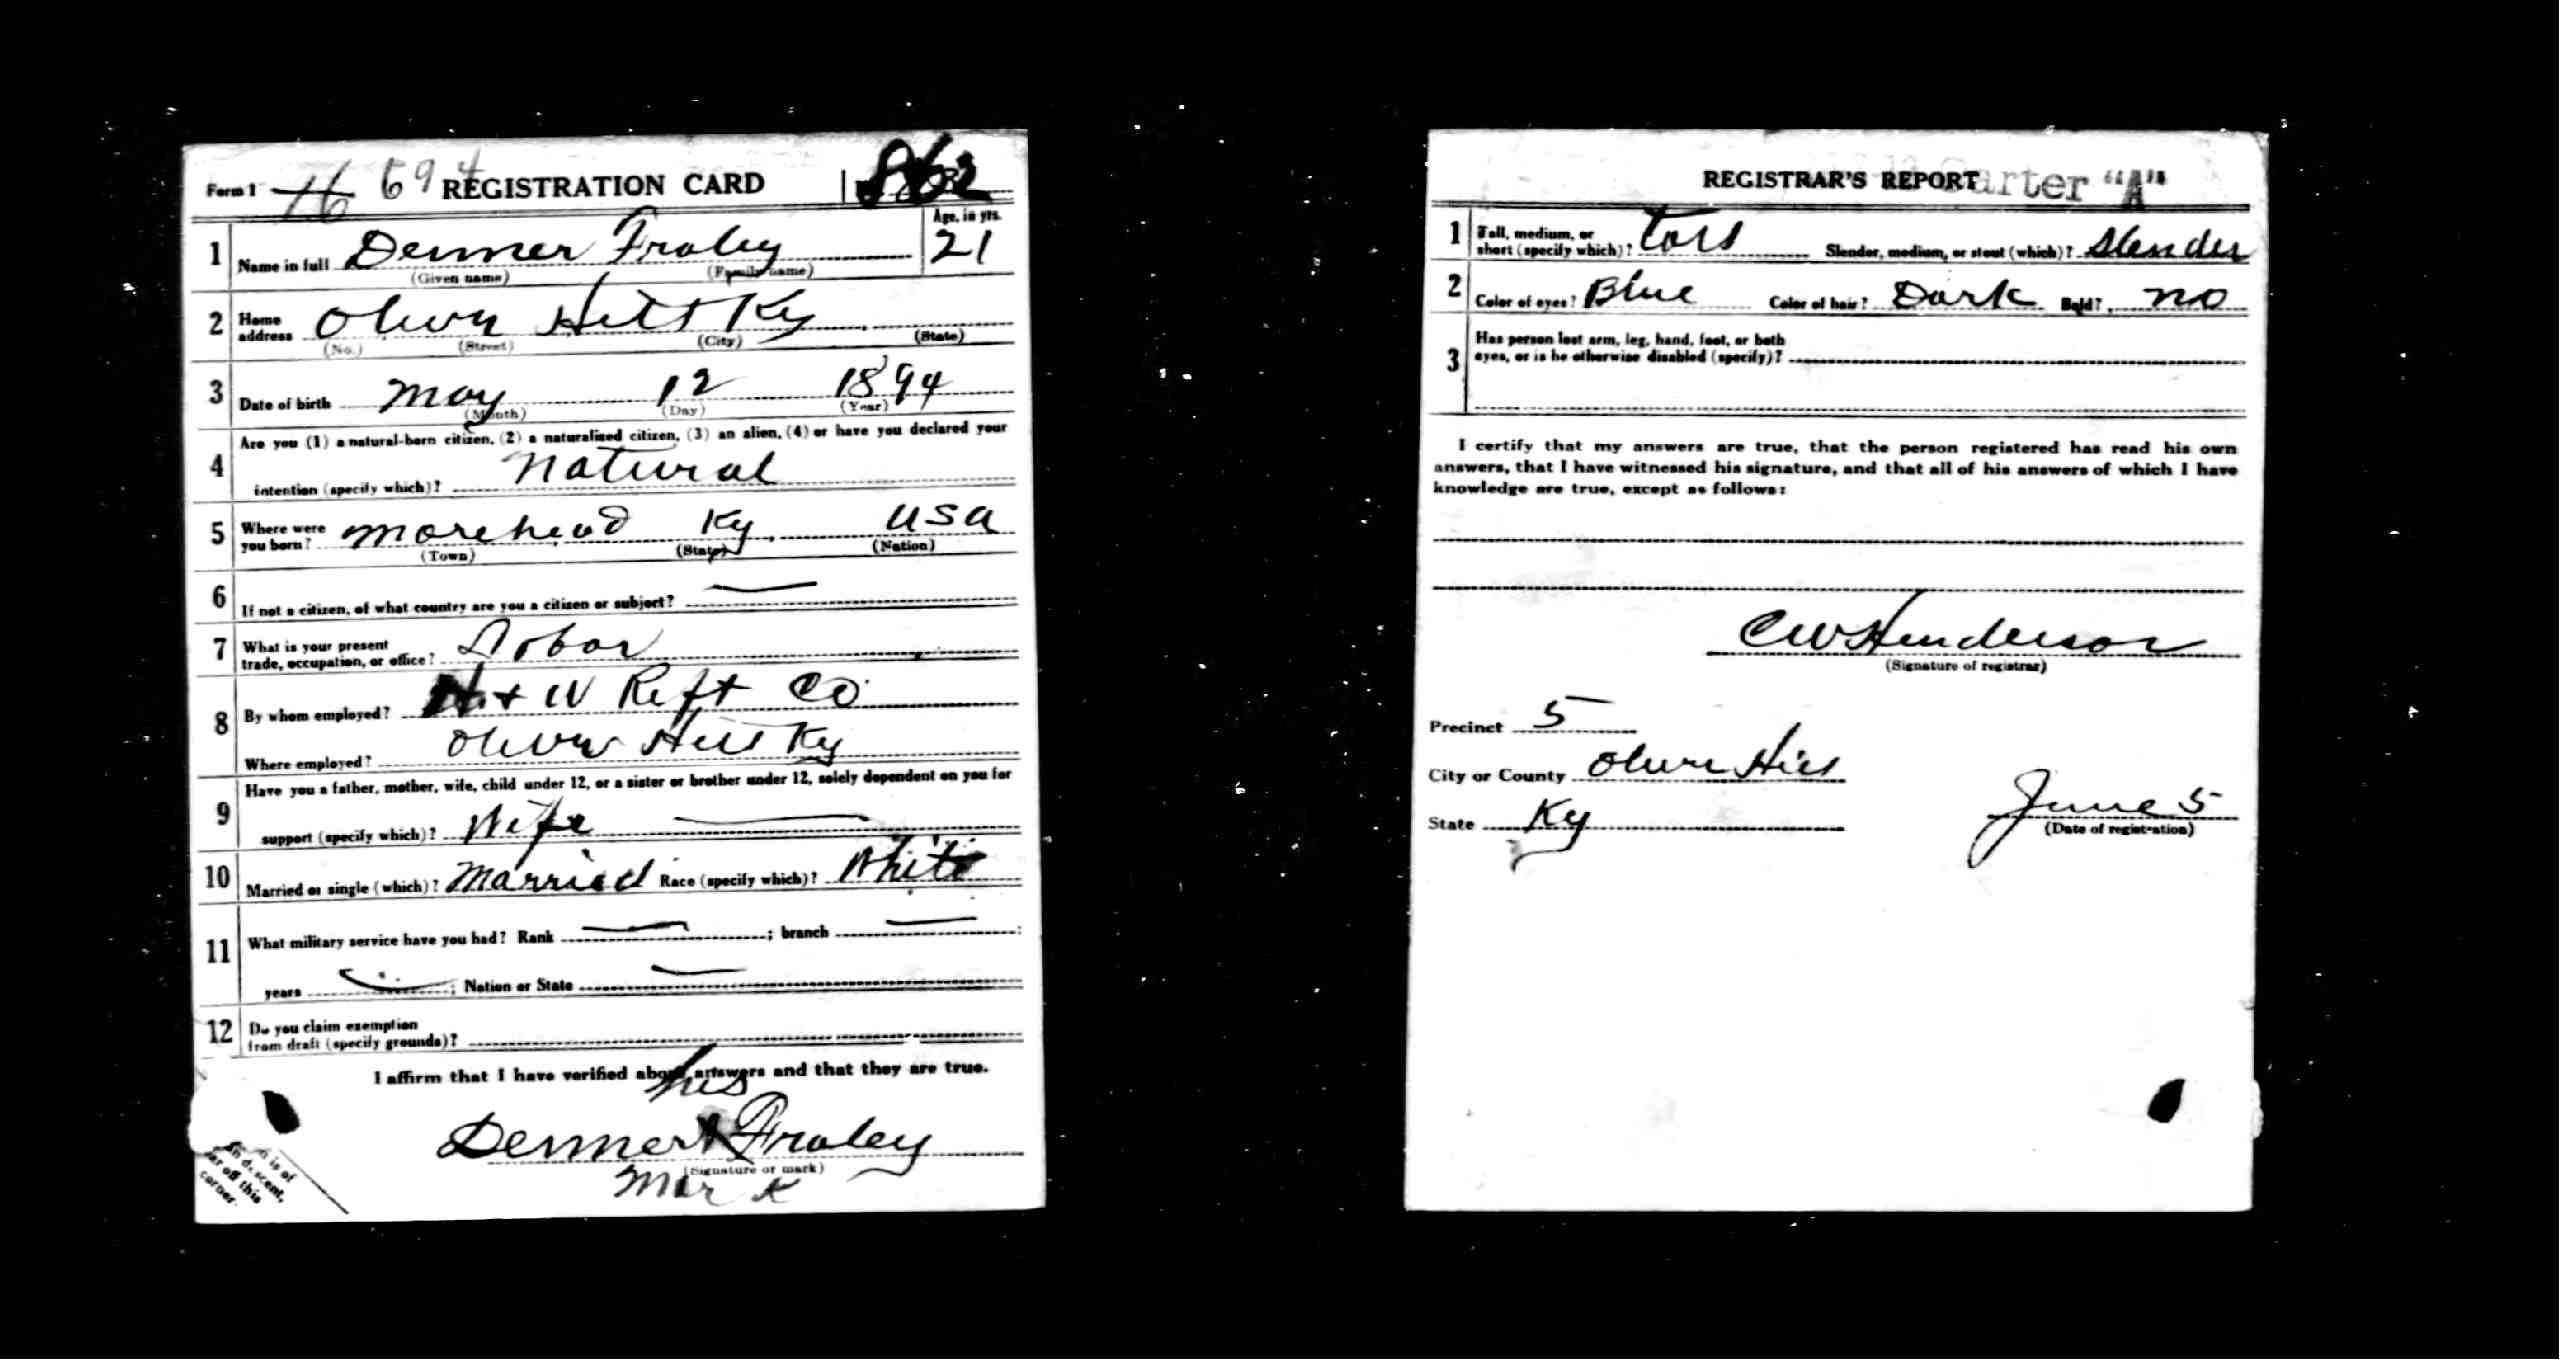 Form 1 16 694 REGISTRATION CARD 862
Age, in yrs.
1 Name in full Denmer Fraley 21
(Given name) (Family name)
2 Home address Olive Hill Ky
(No.) (Street) (City) (State)
3 Date of birth May 12 1894
(Month) (Day) (Year)
4 Are you (1) a natural-born citizen, (2) a naturalized citizen, (3) an alien, (4) or have you declared your
intention (specify which)? Natural
5 Where were you born? Morehead Ky USA
(Town) (State) (Nation)
6 If not a citizen, of what country are you a citizen or subject? —
7 What is your present trade, occupation, or office? Labor
8 By whom employed? H + W Reft Co
Where employed? Olive Hill Ky
9 Have you a father, mother, wife, child under 12, or a sister or brother under 12, solely dependent on you for
support (specify which)? Wife —
10 Married or single (which)? Married Race (specify which)? White
11 What military service have you had? Rank — ; branch — ;
years — ; Nation or State —
12 Do you claim exemption
from draft (specify grounds)?
I affirm that I have verified above answers and that they are true.
his
Denmer X Fraley
(Signature or mark)
Mark
is of
descent,
off this
corner.
REGISTRAR'S REPORT Carter "A"
1 Tall, medium, or short (specify which)? Tall Slender, medium, or stout (which)? Slender
2 Color of eyes? Blue Color of hair? Dark Bald? no
3 Has person lost arm, leg, hand, foot, or both
eyes, or is he otherwise disabled (specify)?
I certify that my answers are true, that the person registered has read his own
answers, that I have witnessed his signature, and that all of his answers of which I have
knowledge are true, except as follows:
CW Henderson
(Signature of registrar)
Precinct 5
City or County Olive Hill
State Ky
June 5
(Date of registration)